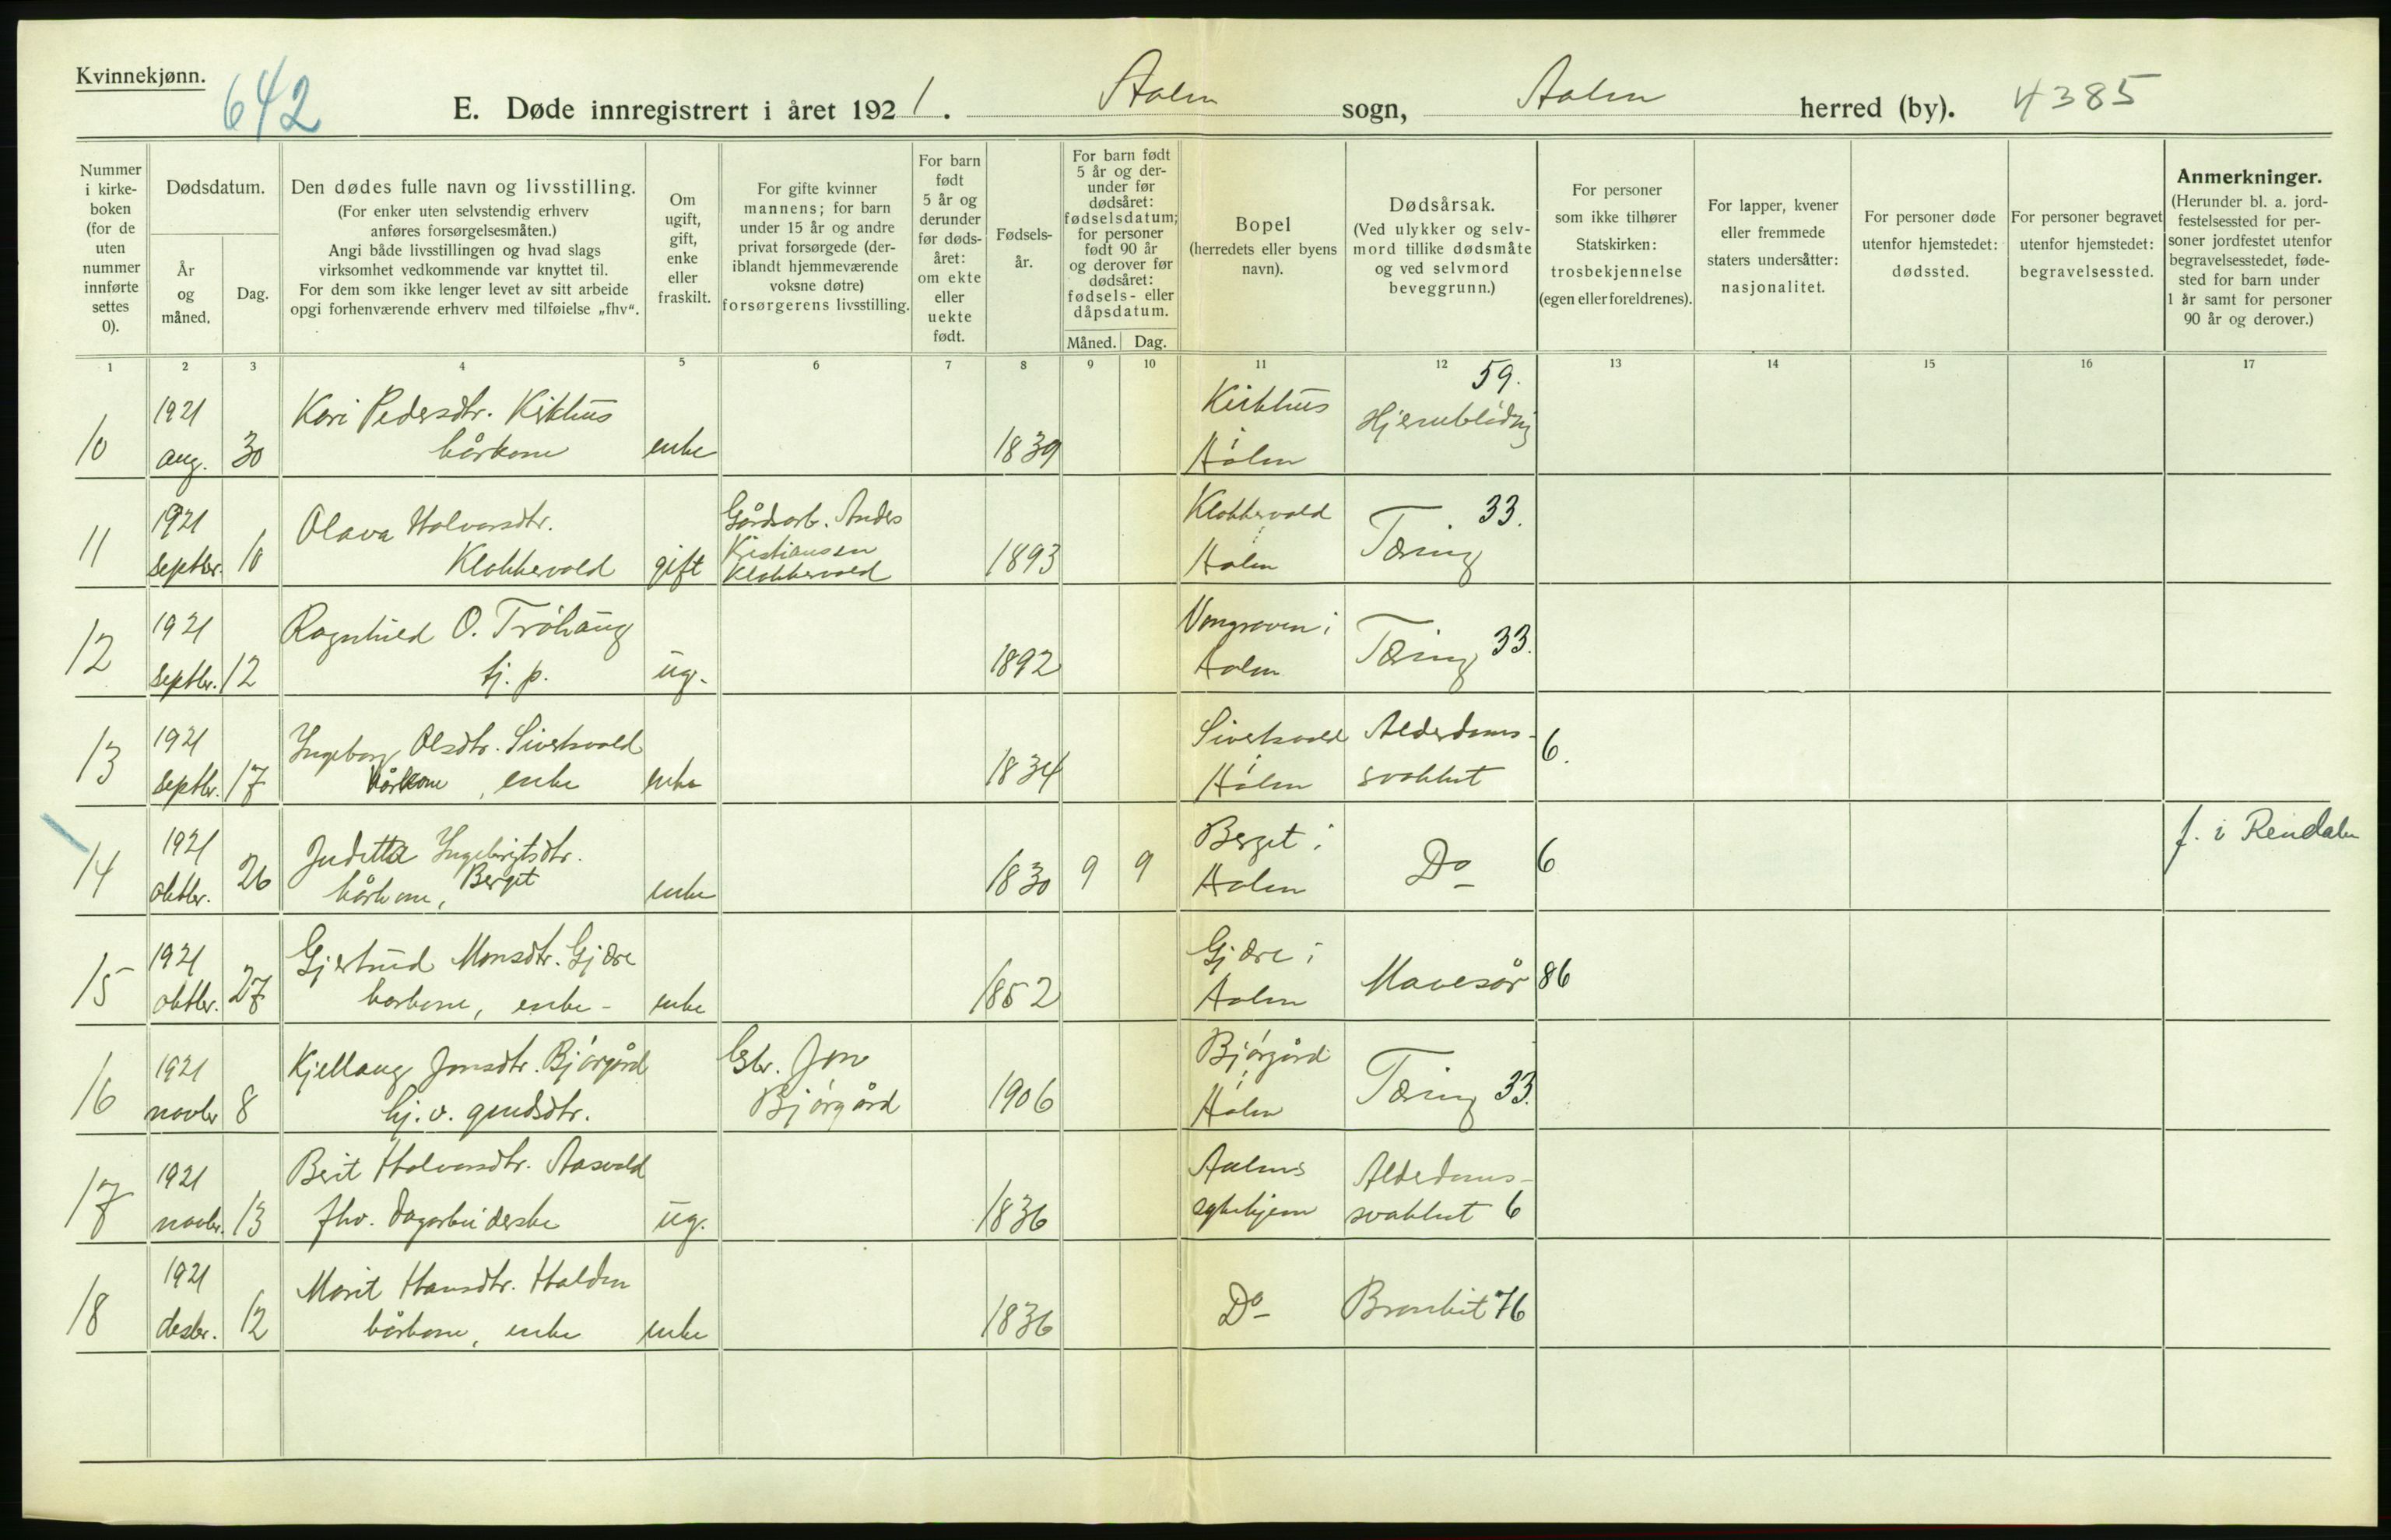 Kvinnekjønn.
642
E. Døde innregistrert i året 1921. Aalen sogn, Aalen herred (by). 4385
Nummer i kirke-boken (for de uten nummer innførte settes 0).
Dødsdatum.
År og måned.
Dag.
Den dødes fulle navn og livsstilling.
(For enker uten selvstendig erhverv
anføres forsørgelsesmåten.)
Angi både livsstillingen og hvad slags
virksomhet vedkommende var knyttet til.
For dem som ikke lenger levet av sitt arbeide
opgi forhenværende erhverv med tilføielse „fhv“.
Om ugift, gift, enke eller fraskilt.
For gifte kvinner
mannens; for barn
under 15 år og andre
privat forsørgede (der-
iblandt hjemmeværende
voksne døtre)
forsørgerens livsstilling.
For barn født 5 år og derunder før døds-året: om ekte eller uekte født.
Fødsels-år.
For barn født
5 år og der-
under før
dødsåret:
fødselsdatum;
for personer
født 90 år
og derover før
dødsåret:
fødsels- eller
dåpsdatum.
Måned. Dag.
Bopel
(herredets eller byens
navn).
Dødsårsak.
(Ved ulykker og selv-
mord tillike dødsmåte
og ved selvmord
beveggrunn.)
For personer
som ikke tilhører
Statskirken:
trosbekjennelse
(egen eller foreldrenes).
For lapper, kvener
eller fremmede
staters undersåtter:
nasjonalitet.
For personer døde
utenfor hjemstedet:
dødssted.
For personer begravet
utenfor hjemstedet:
begravelsessted.
Anmerkninger.
(Herunder bl. a. jord-
festelsessted for per-
soner jordfestet utenfor
begravelsesstedet, føde-
sted for barn under
1 år samt for personer
90 år og derover.)
1 2 3 4 5 6 7 8 9 10 11 12 13 14 15 16 17
10 1921 aug. 30 Kari Pedersdtr. Kirkhus kårkone enke 1839 Kirkhus i Aalen Hjerneblødng 59.
11 1921 septbr. 10 Olava Halvorsdtr. Klokkervold gift Gårdsarb. Anders Kristiansen Klokkervold 1893 Klokkervold i Aalen Tæring 33.
12 1921 septbr. 12 Ragnhild O. Trøhaug tj. p. ug. 1892 Vongraven i Aalen Tæring 33.
13 1921 septbr. 17 Ingeborg Olsdtr. Sivertsvold kårkone, enke enke 1834 Sivertsvold i Aalen Alderdoms-svakhet 6.
14 1921 oktbr. 26 Juditta Ingebrigtsdtr. Berget kårkone, enke 1830 9 9 Berget i Aalen Do 6 f. i Rendalen
15 1921 oktbr. 27 Gjertrud Monsdtr. Gjære kårkone, enke - enke 1852 Gjære i Aalen Mavesår 86
16 1921 novbr 8 Kjellaug Jonsdtr. Bjørgård hj. v. gmdsdtr. Gbr. Jon Bjørgård 1906 Bjørgård i Aalen Tæring 33.
17 1921 novbr. 13 Berit Halvorsdtr. Aasvold fhv. dagarbeiderske ug. 1836 Aalens sykehjem Alderdoms-svakhet 6
18 1921 desbr. 12 Marit Hansdtr. Halden kårkone, enke enke 1836 Do Bronkit 76